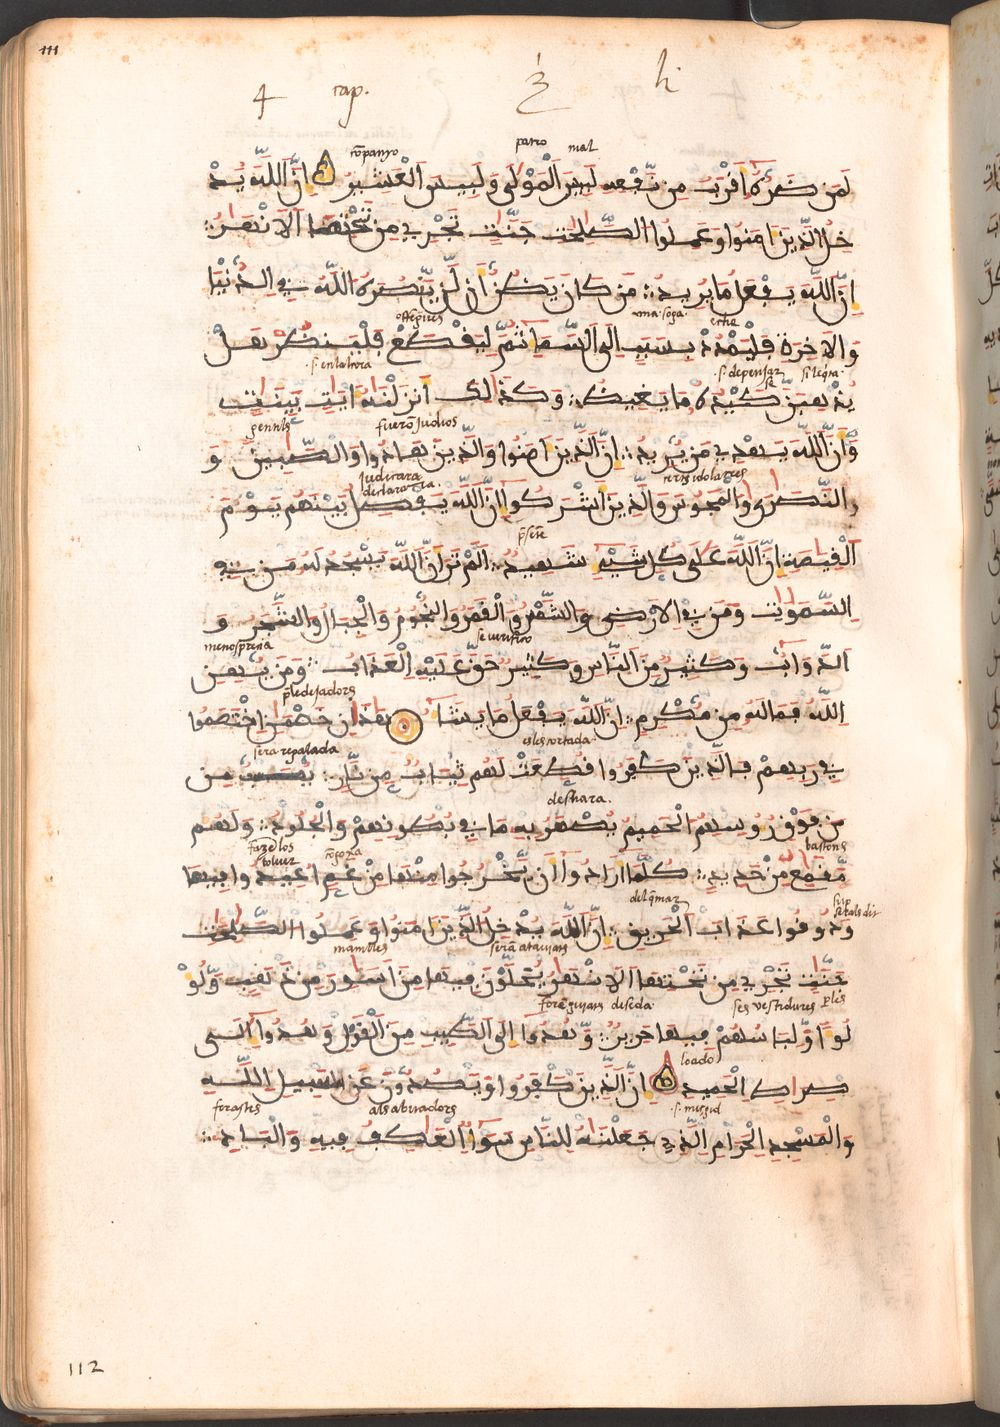 111
4 cap. h
cōpanyo patro mal
لَمَن ضَرُّهُ أَقْرَبُ مِن نَّفْعِهِ لَبِيسَ الْمَوْلَى وَلَبِيسَ الْعَشِيرُ إِنَّ اللَّهَ يُدْ
خِلُ الَّذِينَ ءَامَنُوا وَعَمِلُوا الصَّلِحَتِ جَنَّتٍ تَجْرِي مِن تَحْتِهَا الْأَنْهَرُ
إِنَّ اللَّهَ يَفْعَلُ مَا يُرِيدُ مَن كَانَ يَظُنُّ أَن لَّن يَّنصُرَهُ اللَّهُ فِي الدُّنْيَا
offegues una soga eche
وَالْآخِرَةِ فَلْيَمْدُدْ بِسَبَبٍ إِلَى السَّمَاءِ ثُمَّ لِيَقْطَعْ فَلْيَنظُرْ هَلْ
.s. depensar se
يُذْهِبَنَّ كَيْدُهُ مَا يَغِيظُ وَكَذَلِكَ أَنزَلْنَهُ ءَايَتٍ بَيِّنَتٍ
gentils fuerō Judios
وَأَنَّ اللَّهَ يَهْدِي مَن يُرِيدُ إِنَّ الَّذِينَ ءَامَنُوا وَالَّذِينَ هَادُوا وَالصَّبِينَ وَ
Judicara declararia
النَّصَرَى وَالْمَجُوسَ وَالَّذِينَ أَشْرَكُوا إِنَّ اللَّهَ يَفْصِلُ بَيْنَهُمْ يَوْمَ
الْقِيَمَةِ إِنَّ اللَّهَ عَلَى كُلِّ شَيْءٍ شَهِيدٌ أَلَمْ تَرَ أَنَّ اللَّهَ يَسْجُدُ لَهُ مَن فِي
السَّمَوَتِ وَمَن فِي الْأَرْضِ وَالشَّمْسُ وَالْقَمَرُ وَالنُّجُومُ وَالْجِبَالُ وَالشَّجَرُ وَ
menospreria se verifico
الدَّوَابُّ وَكَثِيرٌ مِّنَ النَّاسِ وَكَثِيرٌ حَقَّ عَلَيْهِ الْعَذَابُ وَمَن يُّهِنِ
pledejadors
اللَّهُ فَمَا لَهُ مِن مُّكْرِمٍ إِنَّ اللَّهَ يَفْعَلُ مَا يَشَاءُ هَذَانِ خَصْمَانِ اخْتَصَمُوا
es les cortada
فِي رَبِّهِمْ فَالَّذِينَ كَفَرُوا قُطِّعَتْ لَهُمْ ثِيَابٌ مِّن نَّارٍ يُصَبُّ مِن
desfara.
مِن فَوْقِ رُءُوسِهِمُ الْحَمِيمُ يُصْهَرُ بِهِ مَا فِي بُطُونِهِمْ وَالْجُلُودُ وَلَهُم
faze los tolver cōgoxa bastons
مَّقَمِعُ مِنْ حَدِيدٍ كُلَّمَا أَرَادُوا أَن يَّخْرُجُوا مِنْهَا مِنْ غَمٍّ أُعِيدُوا فِيهَا
del qmar
وَذُوقُوا عَذَابَ الْحَرِيقِ إِنَّ اللَّهَ يُدْخِلُ الَّذِينَ ءَامَنُوا وَعَمِلُوا الصَّلِحَتِ
manilles serā ataviats
جَنَّتٍ تَجْرِي مِن تَحْتِهَا الْأَنْهَرُ يُحَلَّوْنَ فِيهَا مِنْ أَسَاوِرَ مِن ذَهَبٍ وَلُؤْ
forē guiats de seda ses vestidures perles
لُؤًا وَّلِبَاسُهُمْ فِيهَا حَرِيرٌ وَّهُدُوا إِلَى الطَّيِّبِ مِنَ الْقَوْلِ وَهُدُوا إِلَى
loado
صِرَاطِ الْحَمِيدِ إِنَّ الَّذِينَ كَفَرُوا وَيَصُدُّونَ عَن سَبِيلِ اللَّهِ
forastes als abitadors .s. misgid
وَالْمَسْجِدِ الْحَرَامِ الَّذِي جَعَلْنَهُ لِلنَّاسِ سَوَاءٌ الْعَاكِفُ فِيهِ وَالْبَادِ
112